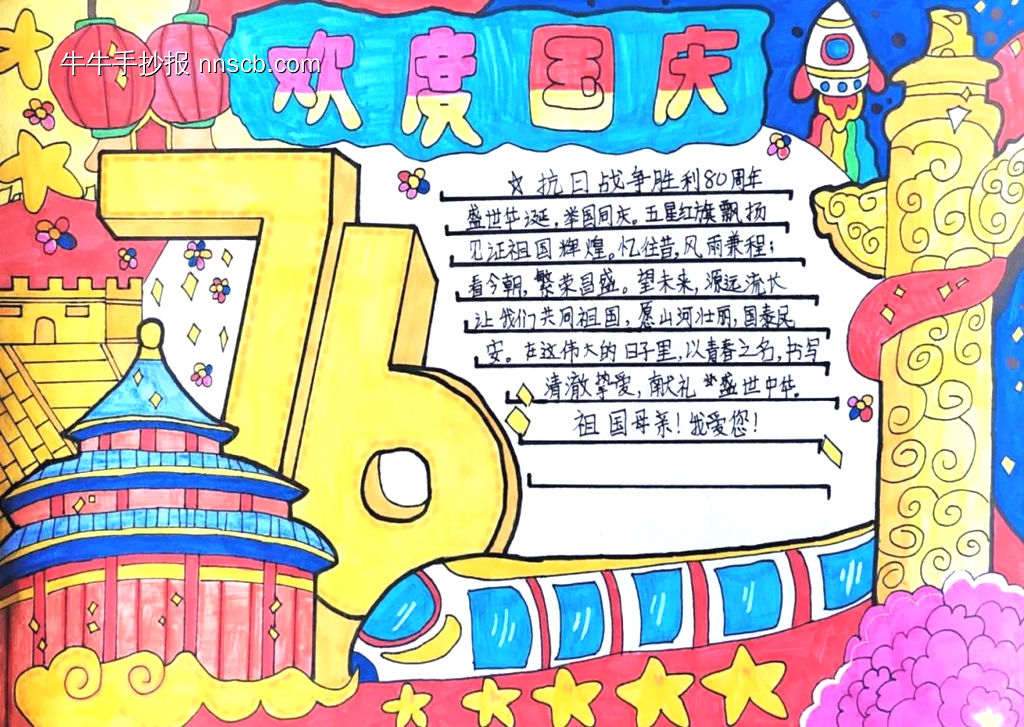 欢度国庆
牛牛手抄报 nnscb.com
76
☆抗日战争胜利80周年
盛世华诞,举国同庆。五星红旗飘扬
见证祖国辉煌。忆往昔,风雨兼程;
看今朝,繁荣昌盛。望未来,源远流长
让我们共同祖国;愿山河壮丽,国泰民
安。在这伟大的日子里,以青春之名,书写
清澈挚爱,献礼盛世中华。
祖国母亲!我爱您!